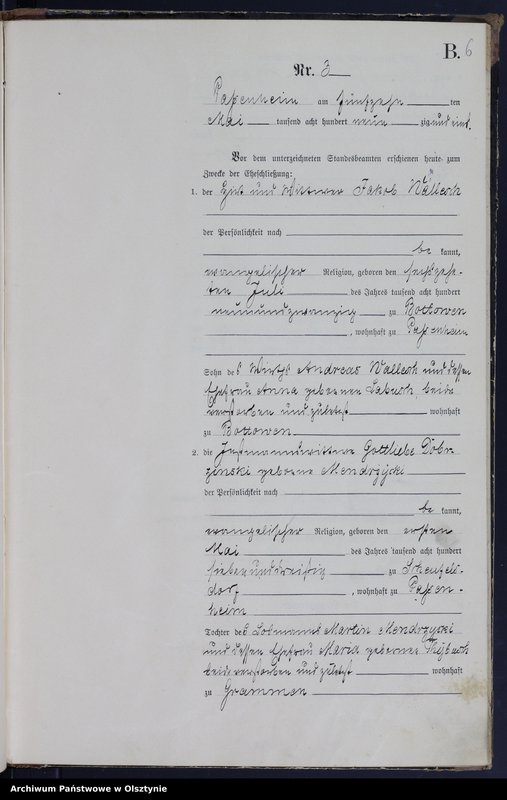 B. 6
Nr. 3
Passenheim am fünfzehn ten
Mai tausend acht hundert neun zig und eins.
Vor dem unterzeichneten Standesbeamten erschienen heute zum
Zwecke der Eheschließung:
1. der und Wittwer Jakob Wallesch
der Persönlichkeit nach
be kannt,
evangelischer Religion, geboren den sechszehn-
ten Juli des Jahres tausend acht hundert
neunundzwanzig zu Bottowen
, wohnhaft zu Passenheim
Sohn des Wirths Andreas Wallesch und dessen
Ehefrau Anna geborenen Labusch, beide
verstorben und zuletzt wohnhaft
zu Bottowen
2. die Gottliebe Dobr
zinski geborene Mendrzycki
der Persönlichkeit nach
be kannt,
evangelischer Religion, geboren den ersten
Mai des Jahres tausend acht hundert
siebenunddreißig zu Scheufels-
dorf , wohnhaft zu Passen-
heim
Tochter des Losmanns Martin Mendrzycki
und dessen Ehefrau Maria geborenen
beide verstorben und zuletzt wohnhaft
zu Grammen
Archiwum Państwowe w Olsztynie